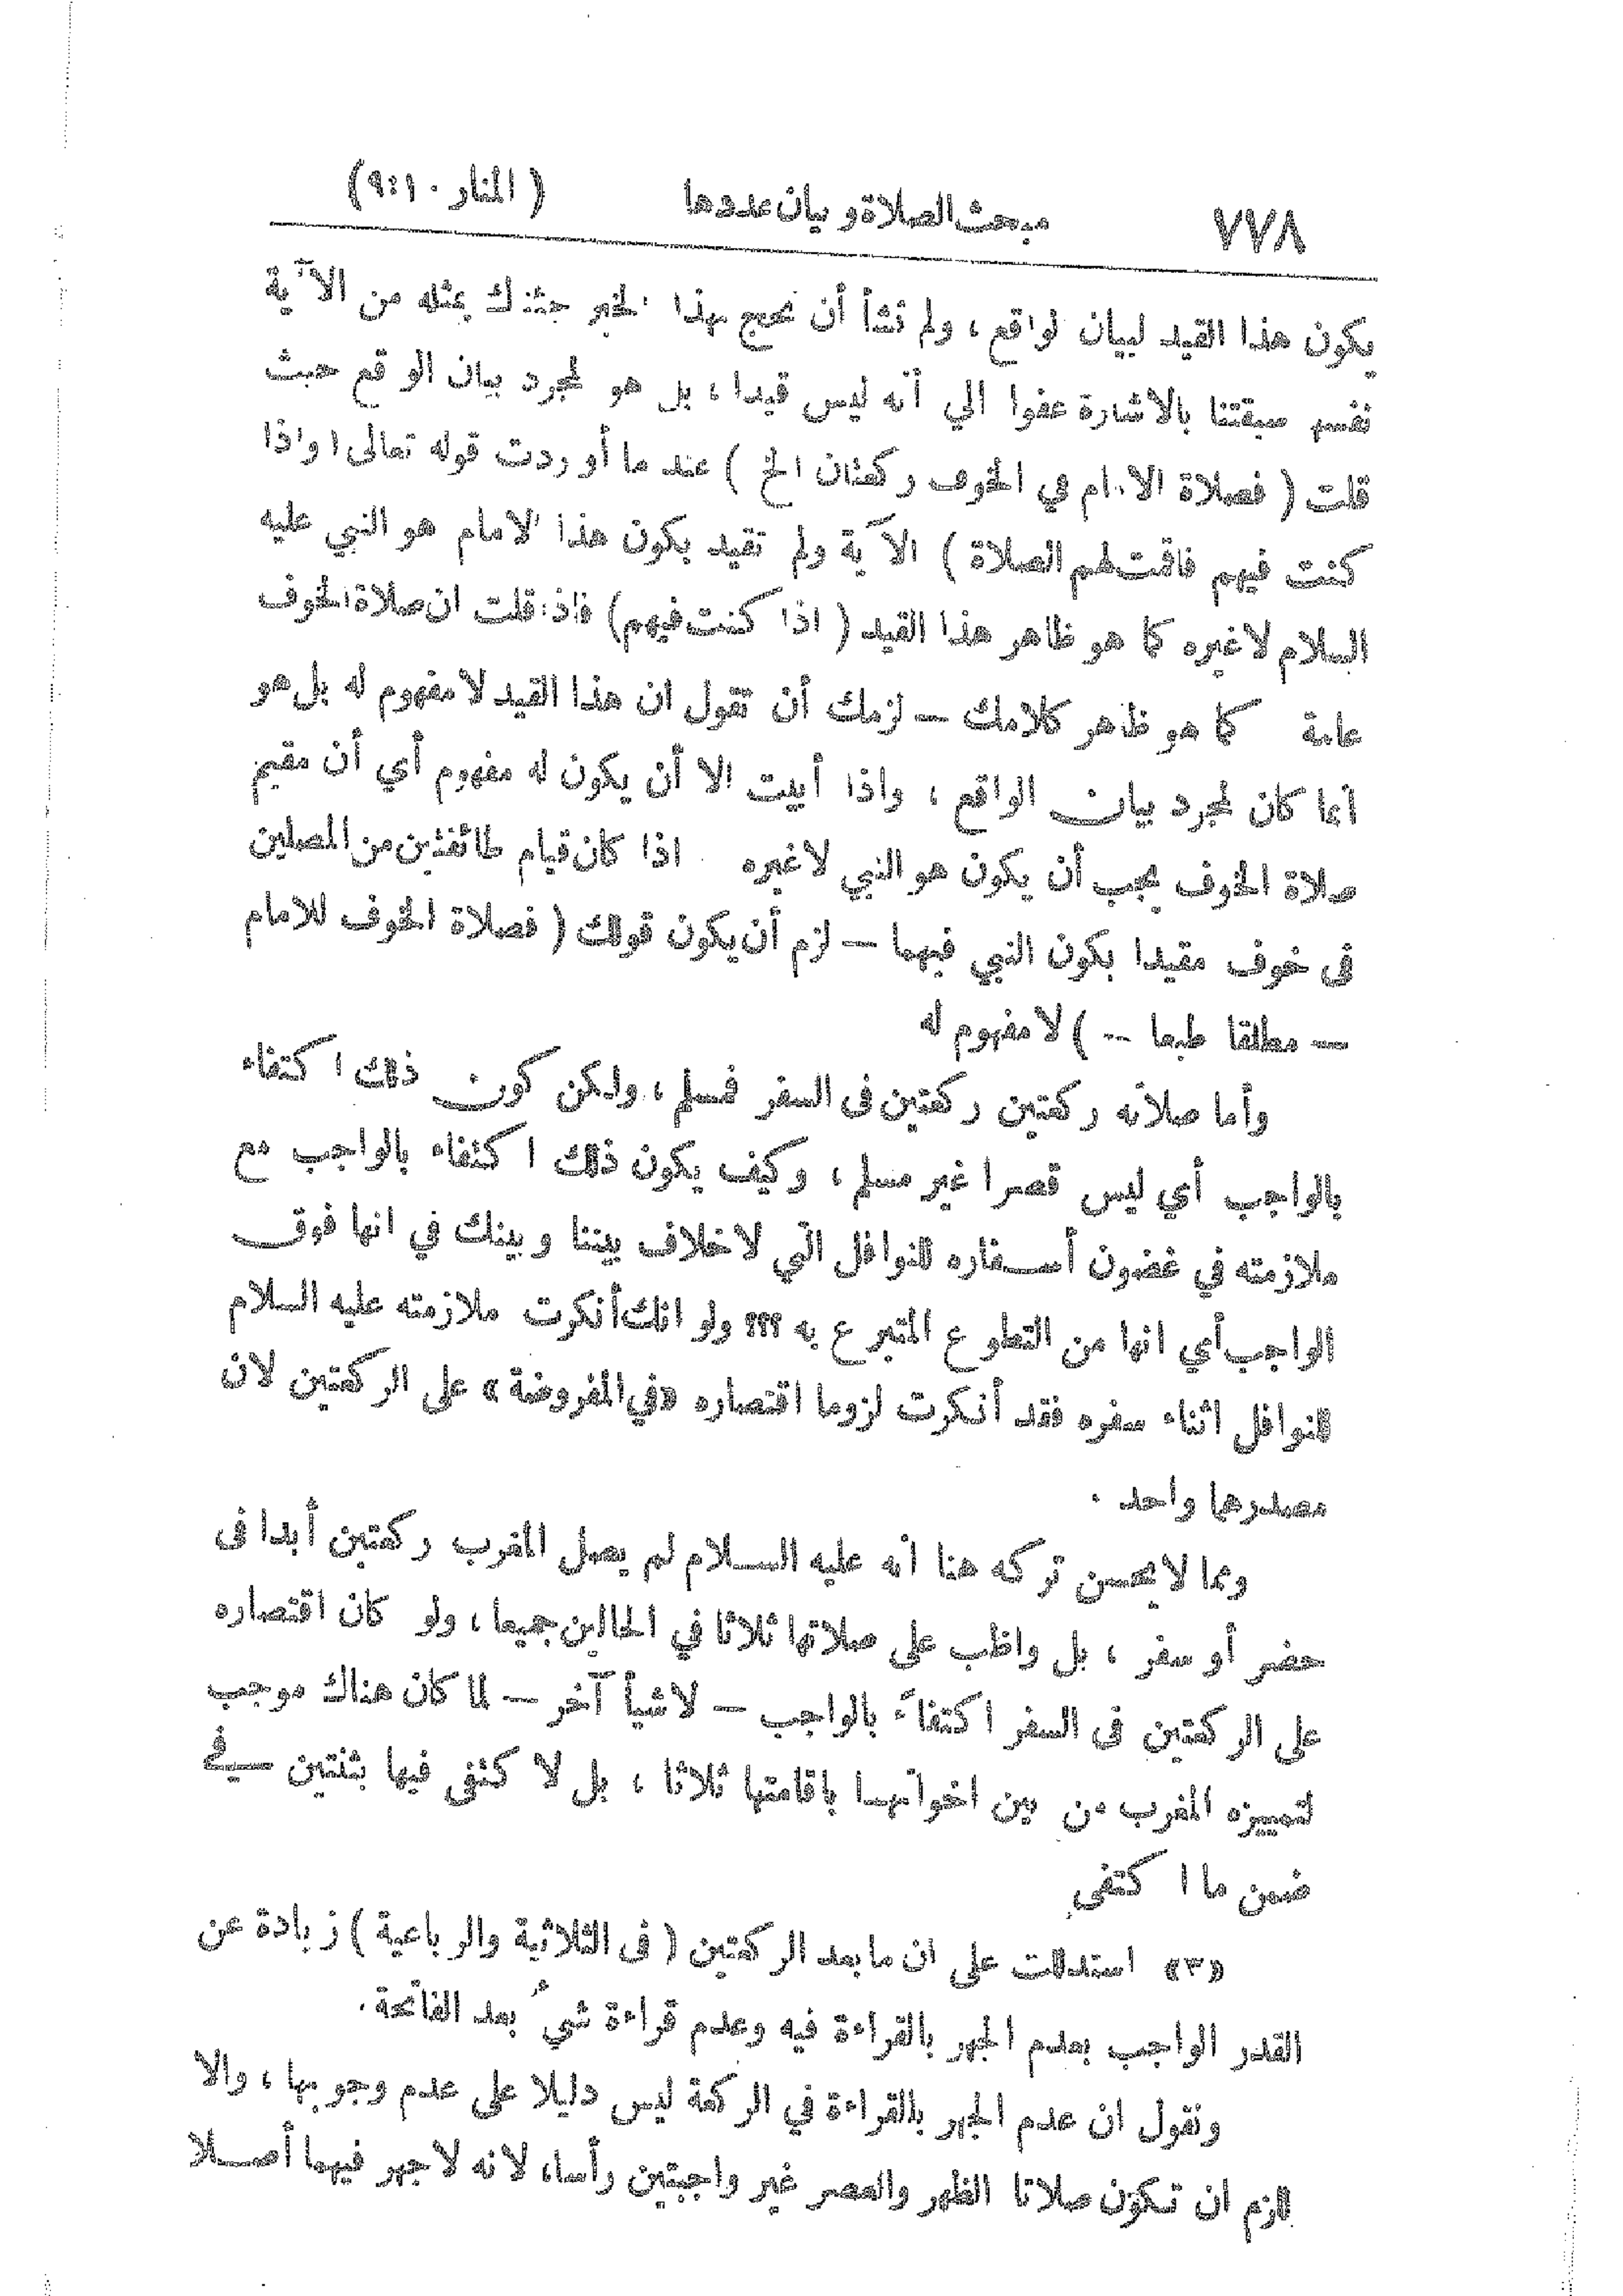 ٧٧٨ مبحث الصلاة وبيان عددها ( المنار ١٠:٩)
يكون هذا القيد لبيان لواقع ، ولم نشأ أن نحتج بهذا الخبر جئناك بمثله من الآية
نفسها سبقتنا بالاشارة عفوا الي أنه ليس قيدا ، بل هو لمجرد بيان الوقع حيث
قلت ( فصلاة الامام في الخوف ركعتان الخ ) عند ما أوردت قوله تعالى ( واذا
كنت فيهم فاقمت لهم الصلاة ) الآية ولم تقيد بكون هذا الامام هو النبي عليه
السلام لا غيره كما هو ظاهر هذا القيد ( اذا كنت فيهم ) فاذا قلت ان صلاة الخوف
عامة كما هو ظاهر كلامك — لزمك أن تقول ان هذا القيد لا مفهوم له بل هو
انما كان لمجرد بيان الواقع ، واذا أبيت الا أن يكون له مفهوم أي أن مقيم
صلاة الخوف يجب أن يكون هو النبي لا غيره اذا كان قيام طائفتين من المصلين
فى خوف مقيدا بكون النبي فيهما — لزم أن يكون قولك ( فصلاة الخوف للامام
— مطلقا طبعا -- ) لا مفهوم له
وأما صلاته ركعتين ركعتين فى السفر فمسلم ، ولكن كون ذلك اكتفاء
بالواجب أي ليس قصرا غير مسلم ، وكيف يكون ذلك اكتفاء بالواجب مع
ملازمته في غضون أسفاره للنوافل التي لا خلاف بيننا وبينك في انها فوق
الواجب أي انها من التطوع المتبرع به ؟؟؟ ولو انك أنكرت ملازمته عليه السلام
للنوافل اثناء سفره فقد أنكرت لزوما اقتصاره «في المفروضة» على الركعتين لان
مصدرهما واحد .
ومما لا يحسن تركه هنا انه عليه السلام لم يصل المغرب ركعتين أبدا فى
حضر أو سفر ، بل واظب على صلاتها ثلاثا في الحالين جميعا ، ولو كان اقتصاره
على الركعتين فى السفر اكتفاءً بالواجب — لا شيأ آخر — لما كان هناك موجب
لتمييزه المغرب من بين اخواتها باقامتها ثلاثا ، بل لا كتفى فيها بثنتين في
ضمن ما اكتفى
«٣» استدللت على ان ما بعد الركعتين ( فى الثلاثية والرباعية ) زيادة عن
القدر الواجب بعدم الجهر بالقراءة فيه وعدم قراءة شيء بعد الفاتحة .
ونقول ان عدم الجهر بالقراءة في الركعة ليس دليلا على عدم وجوبها ، والا
للزم ان تكون صلاتا الظهر والعصر غير واجبتين رأسا ، لانه لا جهر فيهما أصلا